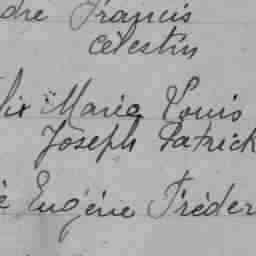 dre Francis
Célestin
lix Maria Louis
Joseph Patrick
é Eugène Fréder